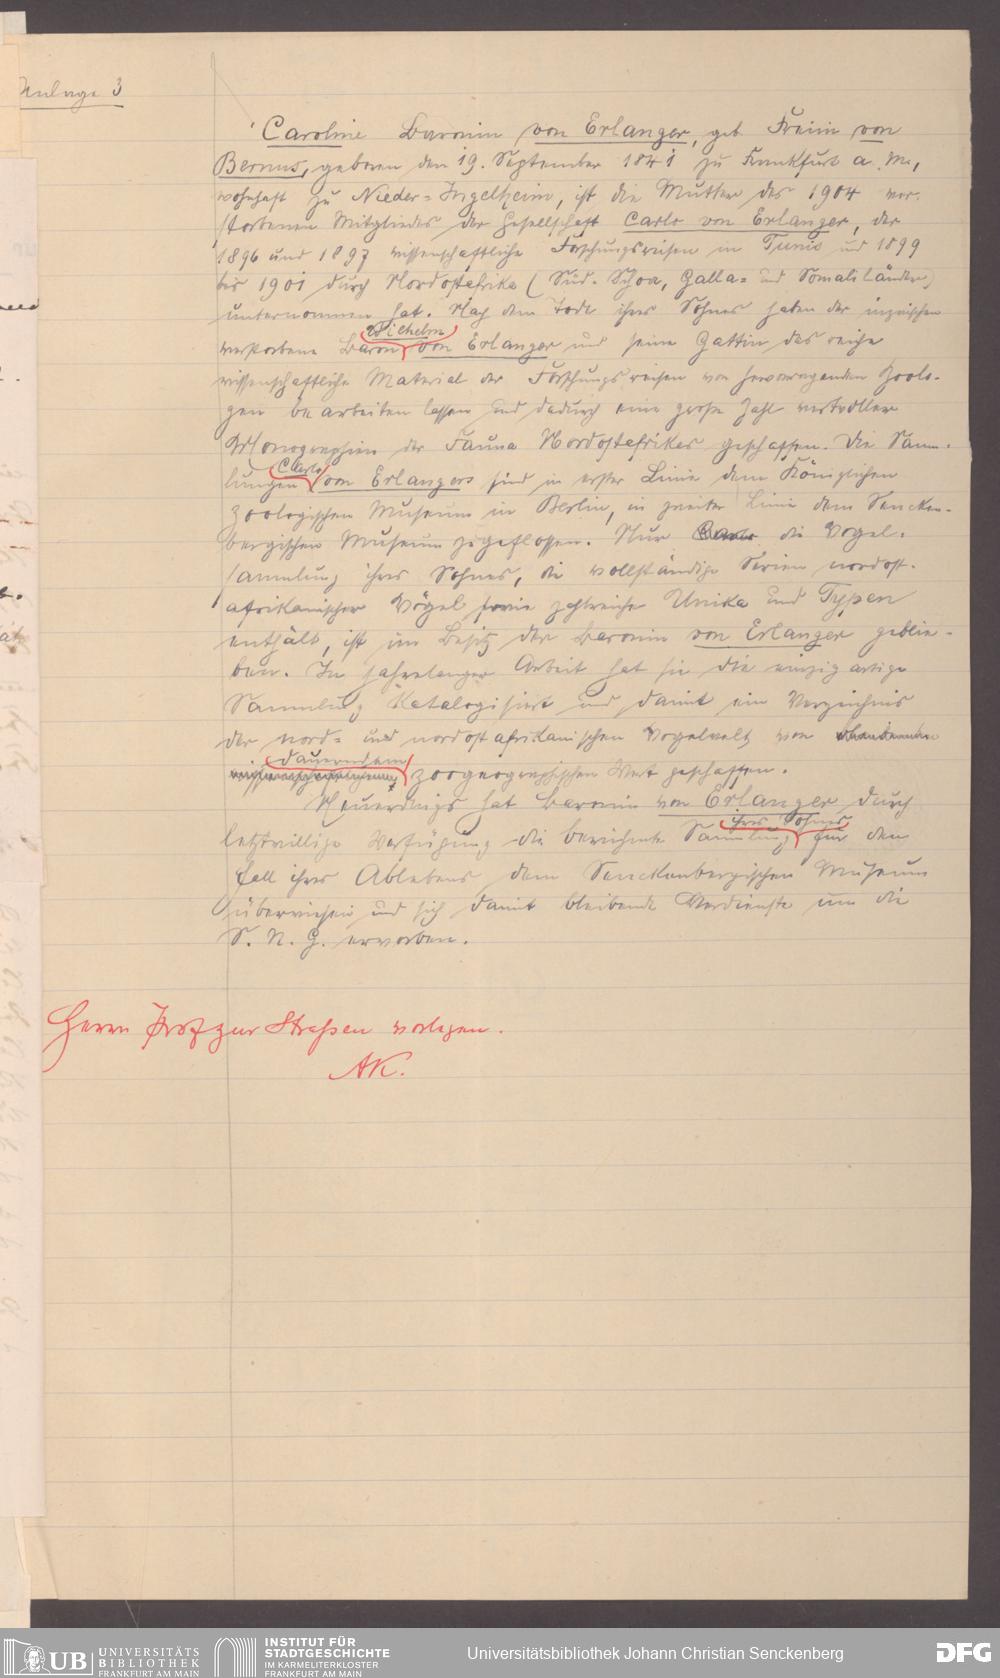 Anlage 3
Caroline Baronin von Erlanger, geb. Freiin von
Bernus, geboren den 19. September 1841 zu Frankfurt a. M.,
wohnhaft zu Nieder-Ingelheim, ist die Mutter des 1904 ver-
storbenen Mitgliedes der Gesellschaft Carlo von Erlanger, der
1896 und 1897 wissenschaftliche Forschungsreisen in Tunis und 1899
bis 1901 durch Nordostafrika (Süd-Schoa, Galla- und Somaliländer)
unternommen hat. Nach dem Tode ihres Sohnes haben der inzwischen
Wilhelm
verstorbene Baron von Erlanger und seine Gattin das reiche
wissenschaftliche Material der Forschungsreisen von hervorragenden Zoolo-
gen bearbeiten lassen und dadurch eine große Zahl wertvoller
Monographien der Fauna Nordostafrikas geschaffen. Die Samm-
Carlo
lungen von Erlangers sind in erster Linie dem Königlichen
zoologischen Museum in Berlin, in zweiter Linie dem Sencken-
bergischen Museum zugeflossen. Nur die Vogel-
sammlung ihres Sohnes, die vollständige Serien nordost-
afrikanischer Vögel sowie zahlreiche Unika und Typen
enthält, ist im Besitz der Baronin von Erlanger geblie-
ben. In jahrelanger Arbeit hat sie die einzigartige
Sammlung katalogisiert und damit ein Verzeichnis
der nord- und nordostafrikanischen Vogelwelt von
dauerndem
zoogeographischen Wert geschaffen.
Neuerdings hat Baronin von Erlanger durch
ihres Sohnes
letztwillige Verfügung die berühmte Sammlung für den
Fall ihres Ablebens dem Senckenbergischen Museum
überwiesen und sich damit bleibende Verdienste um die
S. N. G. erworben.
Herrn Prof zur Strassen vorlegen.
AK.
UB UNIVERSITÄTS
BIBLIOTHEK
FRANKFURT AM MAIN
INSTITUT FÜR
STADTGESCHICHTE
IM KARMELITERKLOSTER
FRANKFURT AM MAIN
Universitätsbibliothek Johann Christian Senckenberg
DFG